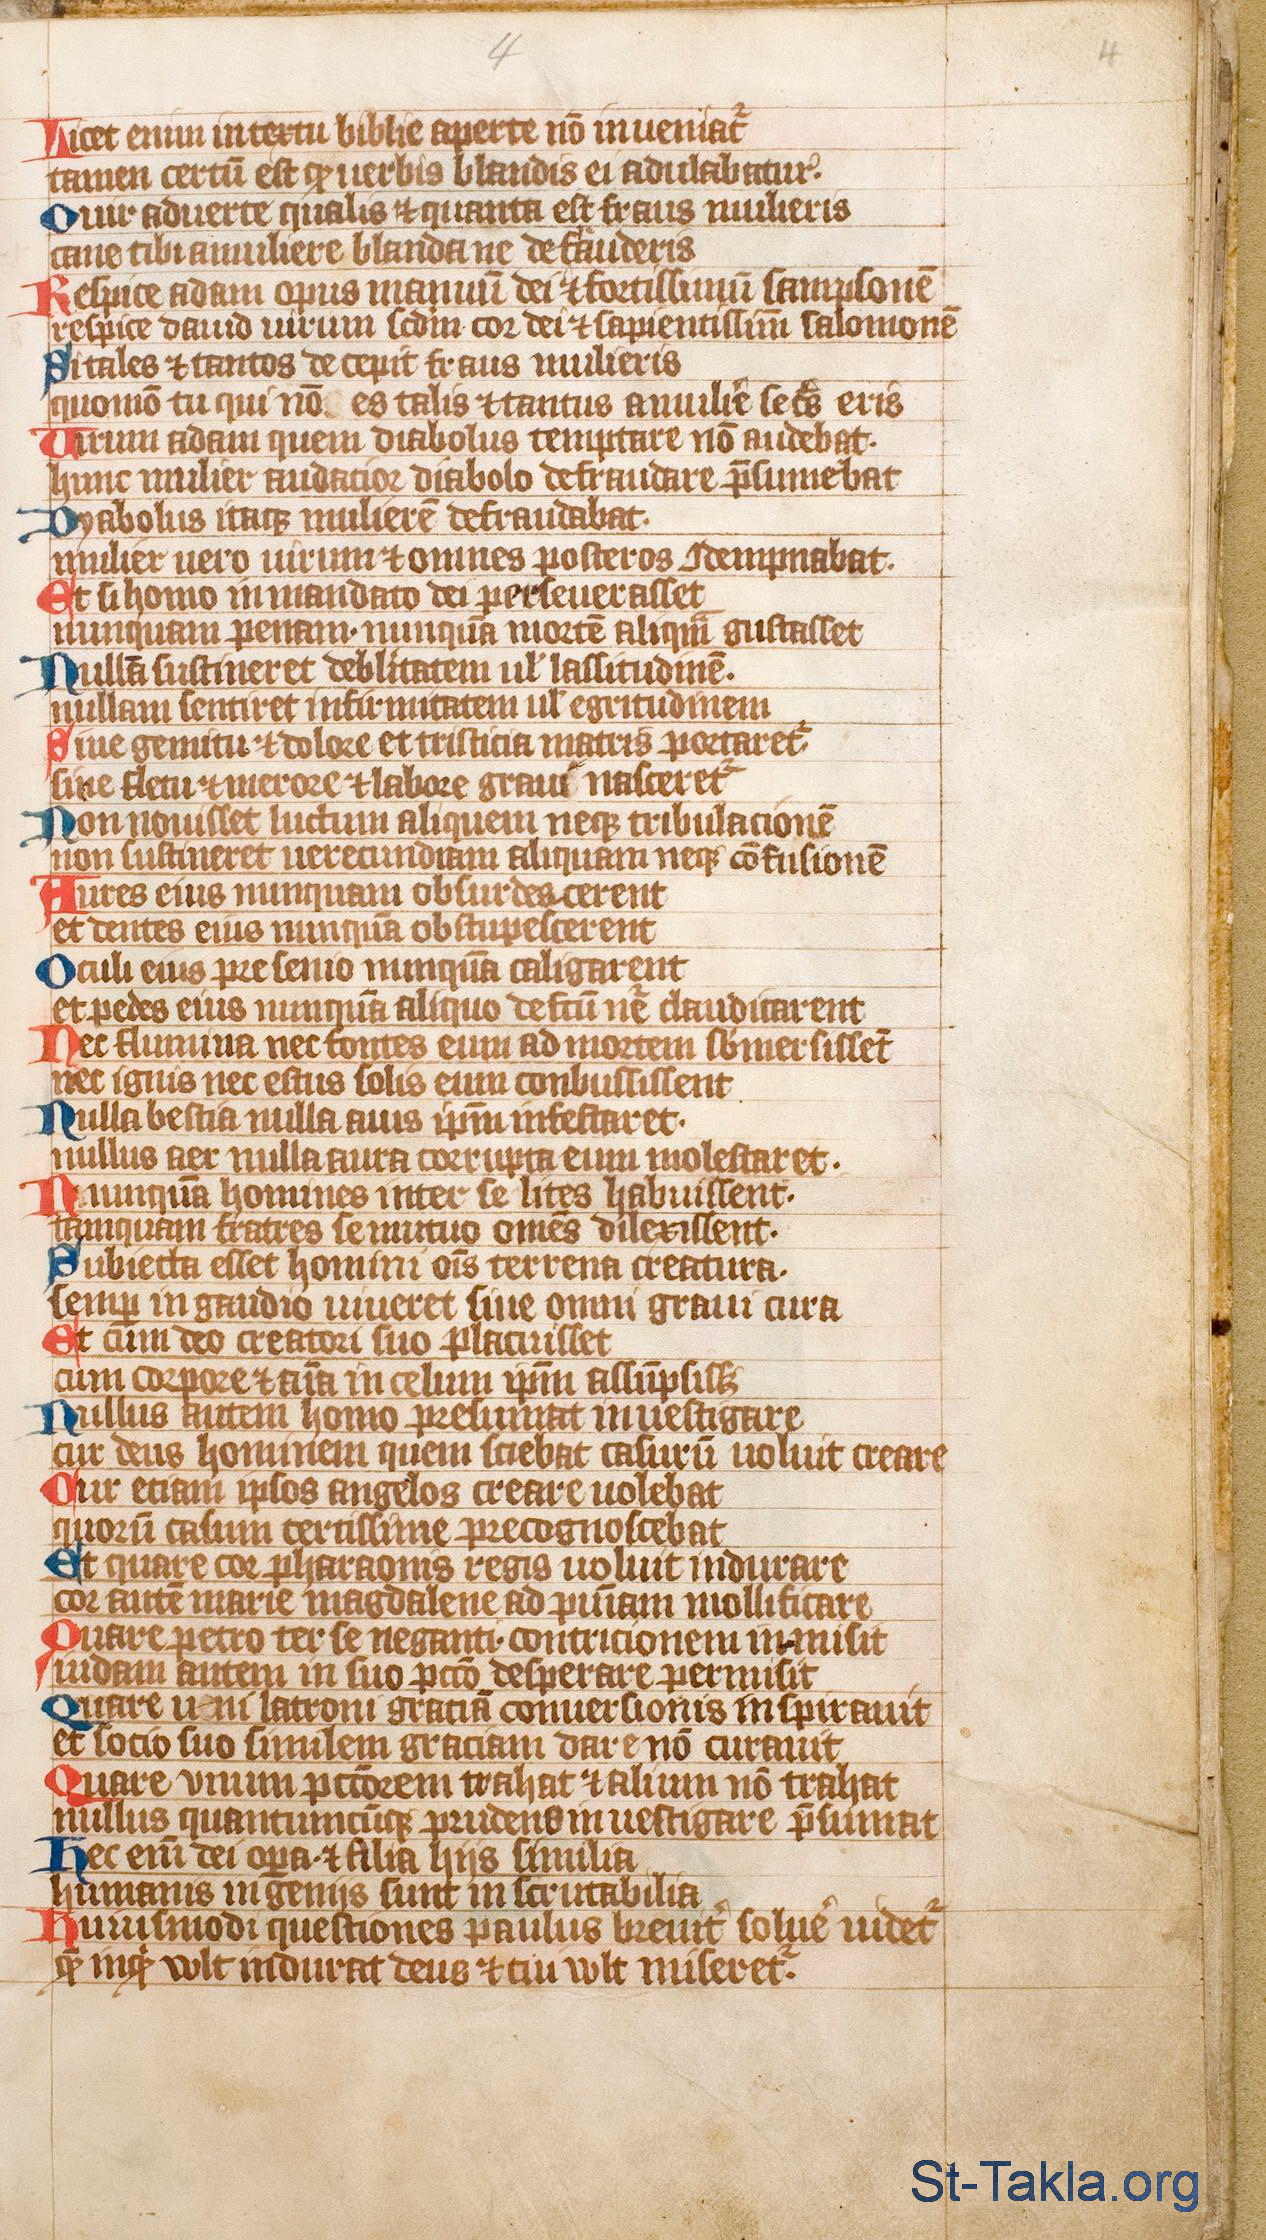 4 4
Licet enim in textu biblie aperte nō inueniat᷑
tamen certū est ꝙ uerbis blandis ei adulabatur᷑.
O uir aduerte qualis ⁊ quanta est fraus mulieris
caue tibi a muliere blanda ne defrauderis
Respice adam opus manuū dei ⁊ fortissimū sampsonē
respice dauid uirum scdm cor dei ⁊ sapientissim̄ salomonē
Si tales ⁊ tantos decepit fraus mulieris
quomō tu qui nō es talis ⁊ tantus a mulie᷑ secs̄ eris
Virum adam quem diabolus temptare nō audebat.
hunc mulier audacior diabolo defraudare p̄sumebat
Dyabolus itaqꝫ mulierē defraudabat.
mulier uero uirum ⁊ omnes posteros ꝯdempnabat.
Et si homo in mandato dei perseuerasset
nunquam penam. nunquā mortē aliqm̄ gustasset
Nullā sustineret deblitatem ul̛ lassitudinē.
nullam sentiret infirmitatem ul̛ egritudinem
Sine gemitu ⁊ dolore et tristicia matris portaret᷑
sine fletu ⁊ merore ⁊ labore graui nasceret᷑
Non nouisset luctum aliquem neqꝫ tribulacionē
non sustineret uerecundiam aliquam neqꝫ cōfusionē
Aures eius nunquam obsurdescerent
et dentes eius nunquā obstupescerent
Oculi eius pre senio nunquā caligarent
et pedes eius nunquā aliquo defcū ne᷑ claudicarent
Nec flumina nec fontes eum ad mortem sb̄mersisset̄
nec ignis nec estus solis eum conbussissent
Nulla bestia nulla auis ip̄m infestaret.
nullus aer nulla aura corrupta eum molestaret.
Nunquā homines inter se lites habuissent.
tamquam fratres se mutuo omēs dilexissent.
Subiecta esset homini oīs terrena creatura.
semꝑ in gaudio uiueret sine omni graui cura
Et cum deo creatori suo placuisset
cum corpore ⁊ aīa in celum ip̄m assūpsissꝫ
Nullus autem homo presumat inuestigare
cur deus hominem quem sciebat casurū uoluit creare
Cur etiam ipsos angelos creare uolebat
quorū casum certissime precognoscebat
Et quare cor pharaonis regis uoluit indurare
cor autē marie magdalene ad pnīam mollificare
Quare petro ter se neganti contricionem inmisit
iudam autem in suo pctō desperare permisit
Quare uni latroni gratiā conuersionis inspirauit
et socio suo similem graciam dare nō curauit
Quare vnum pctōrem trahat ⁊ alium nō trahat
nullus quantumcūqꝫ prudens inuestigare p̄sumat
Hec enī dei oꝑa. ⁊ alia hijs similia
humanis ingenijs sunt inscrutabilia
Huiusmodi questiones paulus breuit᷑ solue᷑ uidet᷑
qm̄ inqͥt wlt indurat deus ⁊ cui wlt miseret᷑.
St-Takla.org